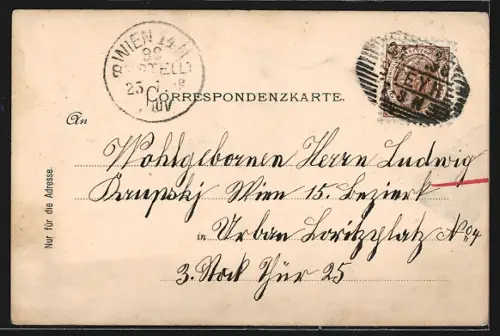 WIEN
BESTELLT
CORRESPONDENZKARTE.
An
Wohlgebornen Herrn Ludwig
Wien 15. Bezierk
in Urban Loritzplatz No 4
3. Stock Thür 25
Nur für die Adresse.